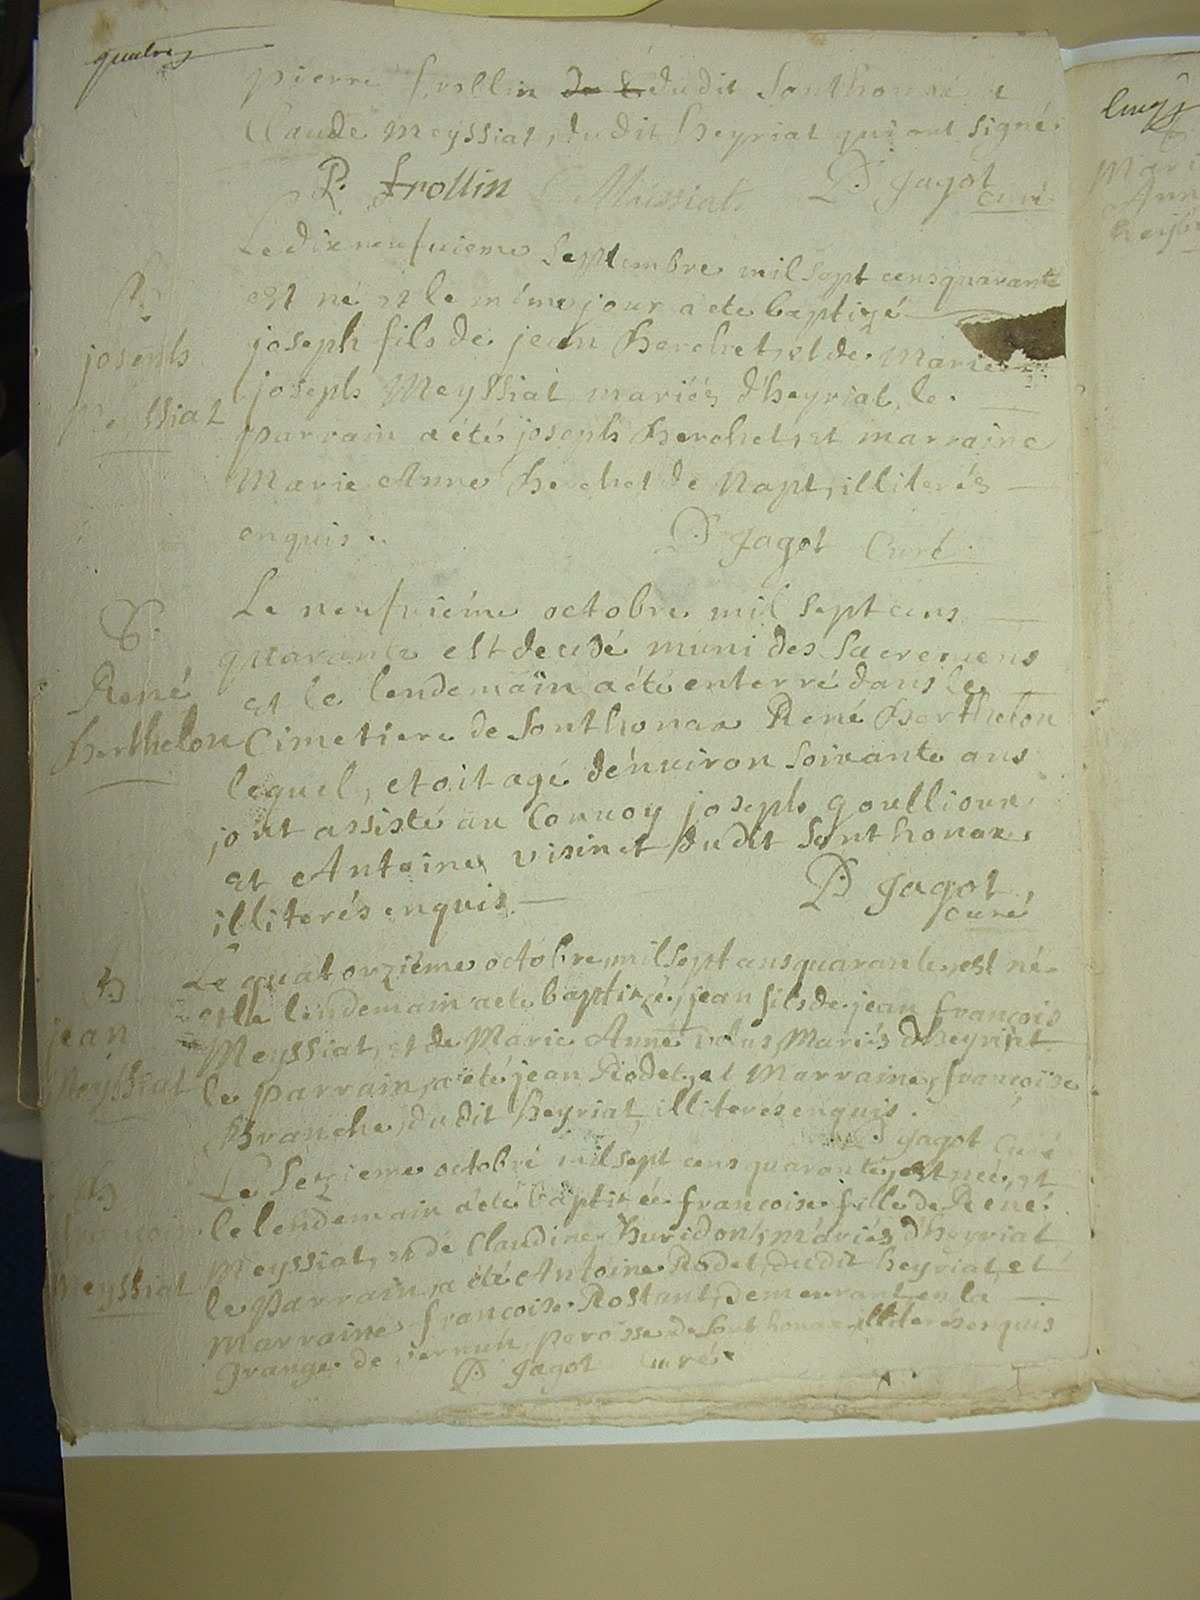 quatre
pierre frollin dudit Sonthonax et
Claude Meyssiat, dudit heyriat qui ont signé.
P. frollin C Meissiat P. Jagot
curé
Le dixneufvieme Septembre mil sept cens quarante
est né et le même jour a ete baptizé
joseph fils de jean Berchet, et de Marie
joseph Meyssiat mariés d'heyriat, le
parrain a été joseph Berchet, et marraine
Marie Anne Berchet de Napt, illiterés
enquis. P. Jagot Curé.
B.
joseph
Meyssiat
Le neufvième octobre mil sept cens
quarante est decedé muni des Sacremens
et le lendemain a été enterré dans le
Cimetiere de Sonthonax René Berthelon
lequel, etoit agé d'énviron soixante ans
ont assisté au Convoy joseph goullioux
et Antoine visinet dudit Sonthonax,
illiterés enquis. P. Jagot,
curé
S.
René
Berthelon
Le quatorziéme octobre, mil sept cens quarante, est né
et le lendemain a ete baptizé, jean fils de jean françois
Meyssiat, et de Marie Anne Mariés d'heyriat
le parrain, a été jean Rodet, et Marraine, françoise
Branche, dudit heyriat, illiterés enquis.
P. Jagot Curé
B
jean
Meyssiat
Le Sezieme octobré mil sept cens quarante, est née, et
le lendemain a été baptizée francoise fille de Réné
Meyssiat, et dé Claudine Buridon, máriés d'heyriat
le Parrain, a été Antoine Rodet, dudit heyriat, et
marraine françoise Rostant, demeurant en la
grange de paroisse de Sonthonax illiterés enquis
P. Jagot Curé
B
francoise
Meyssiat
cinq
Mari
Ann